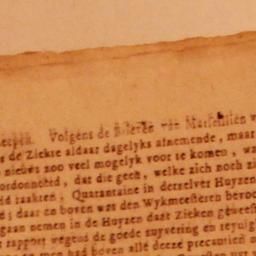 Volgens de Brieven van Marseillien
s de Ziekte aldaar dagelyks afnemende, maar
nieuws zoo veel mogelyk voor te komen, wa
ordonneed, dat die geen, welke zich noch zi
raakten, Quarantaine in derzelver Huyzen
; daar en boven was den Wykmeesteren bevoo
gaan nemen in de Huyzen daar Zieken geweest
rapport wegens de goede suyvering en reynig
men had boven alle deeze precautien